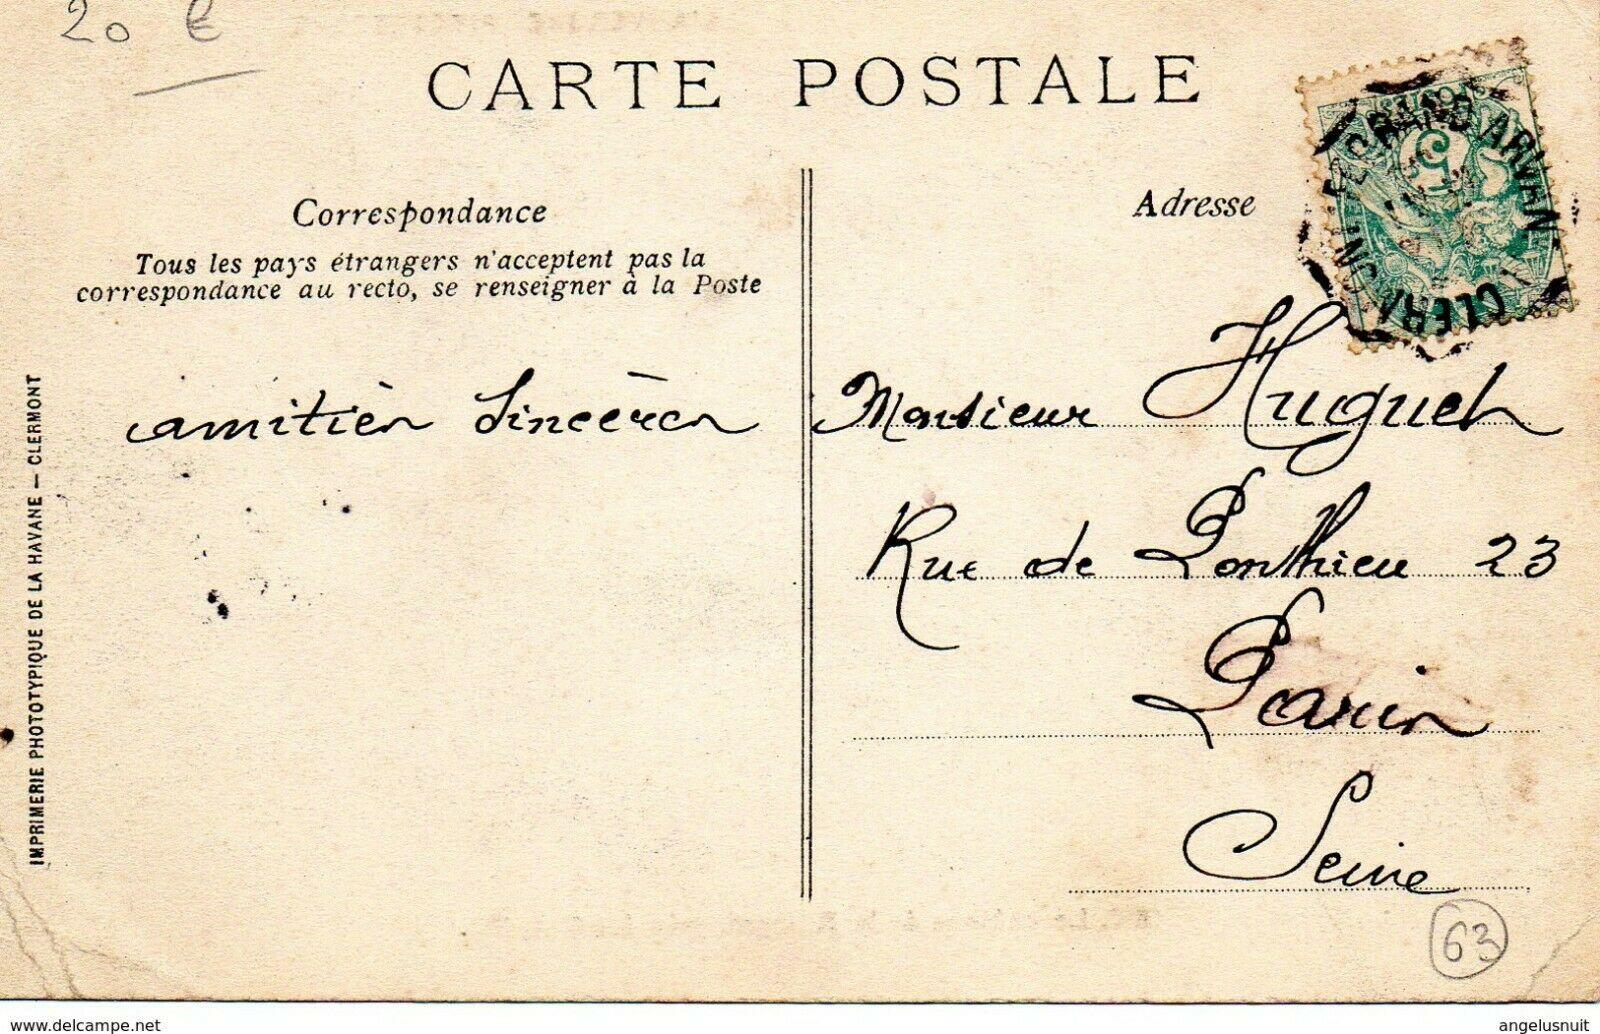 20 €
CARTE POSTALE
Correspondance
Tous les pays étrangers n'acceptent pas la
correspondance au recto, se renseigner à la Poste
amitiés sincères
IMPRIMERIE PHOTOTYPIQUE DE LA HAVANE — CLERMONT
Adresse
POSTES
5
CLERMONT-FERRAND ARVANT
Monsieur Huguet
Rue de Ponthieu 23
Paris
Seine
63
www.delcampe.net
angelusnuit